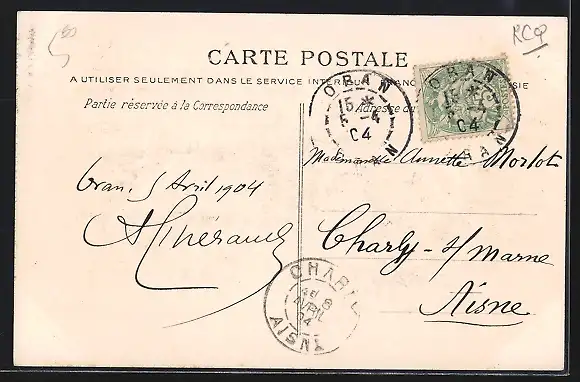 RCP
CARTE POSTALE
A UTILISER SEULEMENT DANS LE SERVICE INTÉRIEUR FRANC SIE
Partie réservée à la Correspondance
Adresse du
ORAN
15 *
5 -4
04
ORAN
15 *
04
ORAN
Mademoiselle Annette Morlot
Oran, 5 Avril 1904
Charly-s/Marne
Aisne
CHARLY
8
AVRIL
04
AISNE